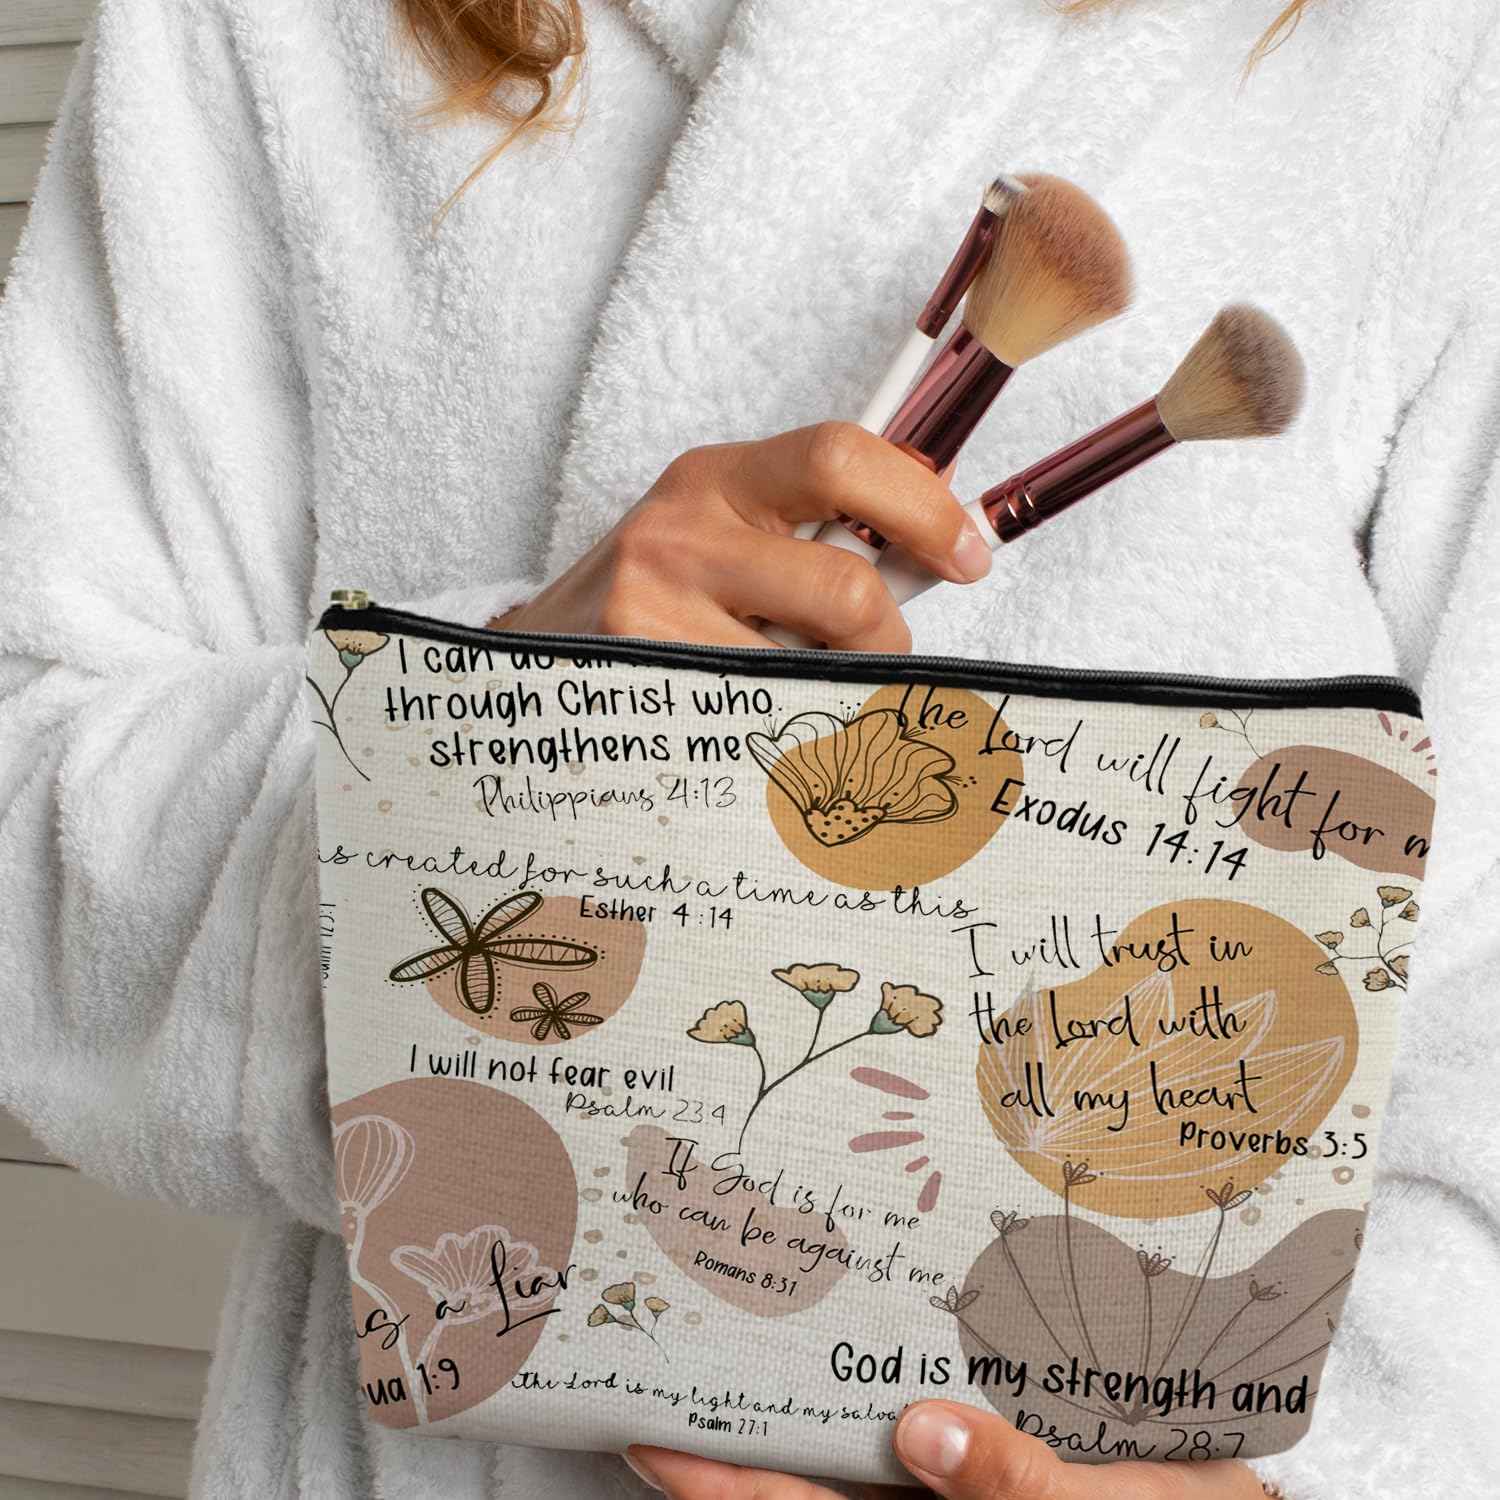 I can do all
through Christ who
strengthens me
Philippians 4:13
The Lord will fight for m
Exodus 14:14
as created for such a time as this
Esther 4:14
I will trust in
the Lord with
all my heart
Proverbs 3:5
I will not fear evil
Psalm 23:4
If God is for me
who can be against me
Romans 8:31
is a Liar
ua 1:9
The Lord is my light and my salva
Psalm 27:1
God is my strength and
Psalm 28:7